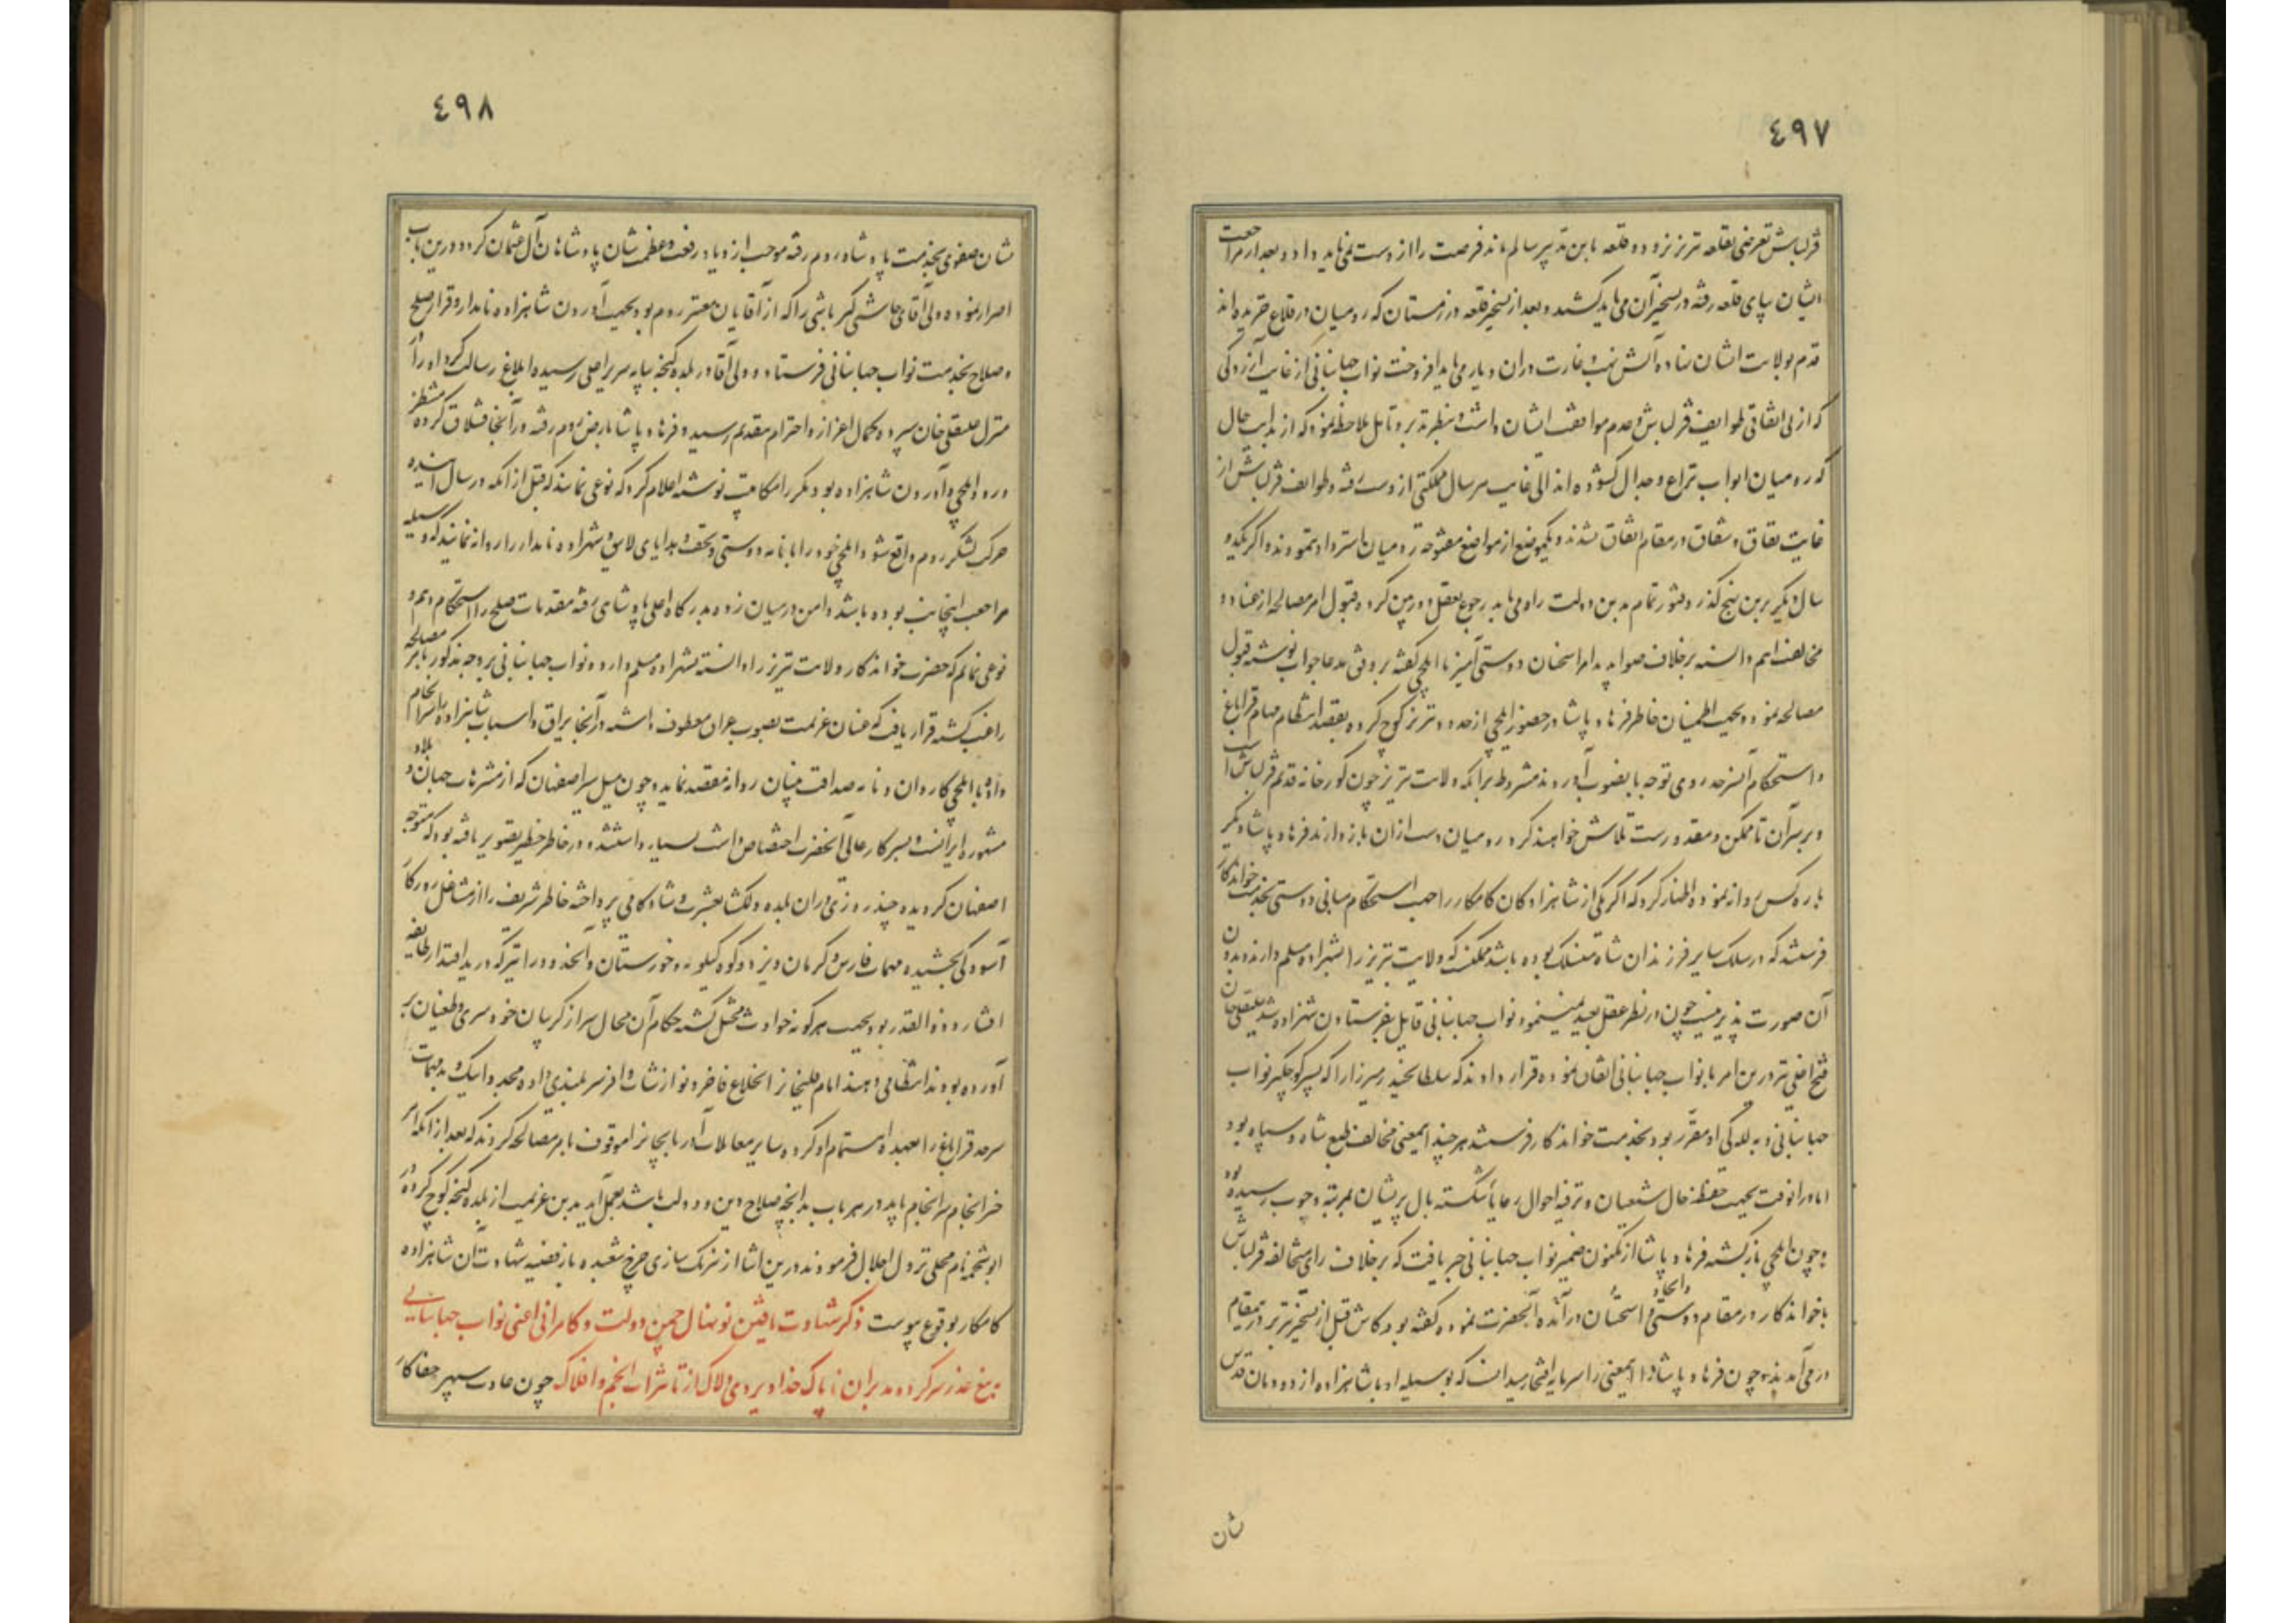 ٤٩٧
قزلباش تعرضی بقلعه تبریز نزوده قلعه باین تدبیر سالم ماند فرصت را از دست نمی باید داد و بعد از مراجعت
ایشان بپای قلعه رفته در تسخیر آن می باید کوشید و بعد از تسخیر قلعه در زمستان که رومیان در قلاع خزیده اند
قدم بولایت ایشان نهاده آتش نهب و غارت در ان دیار می باید افروخت نواب جهانبانی از غایت آزردگی
که از بی اتفاقی طوایف قزلباش و عدم موافقت ایشان داشت بنظر تدبر و تامل ملاحظه نمود که از بدایت حال
که رومیان ابواب نزاع و جدال گشوده اند الی غایت هر سال مملکتی از دست رفته و طوایف قزلباش از
غایت نفاق و شقاق در مقام اتفاق نشدند و یکموضع از مواضع مفتوحه رومیان استرداد ننمودند و اگر یکدو
سال دیگر برین نهج گذرد فتور تمام بدین دولت راه می یابد رجوع بعقل دوربین کرده قبول امر مصالحه از عناد و
مخالفت اهم دانسته برخلاف صوابدید امرا سخنان دوستی آمیز با ایلچی گفته بر وفق مدعا جواب نوشته قبول
مصالحه نمود و بجهت اطمینان خاطر فرهاد پاشا در حضور ایلچی از حدود تبریز کوچ کرده بقصد انتظام مهام قراباغ
و استحکام آنسرحد روی توجه بآنصوب آوردند مشروط برآنکه ولایت تبریز چون گورخانه قدیم قزلباش است
و بر سر آن تا ممکن و مقدورست تلاش خواهند کرد رومیان دست از ان باز دارند فرهاد پاشا دیگر
باره کس روانه نموده اظهار کرد که اگر یکی از شاهزادگان کامکار را جهت استحکام مبانی دوستی بخدمت خواندکار
فرستند که در سلک سایر فرزندان شاه منسلک بوده باشد ممکنست که ولایت تبریز را بشهزاده مسلم دارند و بدون
آن صورت پذیر نیست چون در نظر عقل بعید نمینمود نواب جهانبانی قایل بفرستادن شهزاده شد علیقلی خان
فتح اغلی نیز درین امر با نواب جهانبانی اتفاق نموده قرار دادند که سلطان حیدر میرزا را که پسر کوچکتر نواب
جهانبانی و به للگی او مقرر بود بخدمت خواندکار فرستند هر چند اینمعنی مخالف طبع شاه و سپاه بود
اما در انوقت بجهت حفظ حال شیعیان و ترفیه احوال رعایا شکسته بال پریشان بمرتبه وجوب رسیده بود
و چون ایلچی بازگشته فرهاد پاشا از مکنون ضمیر نواب جهانبانی خبر یافت که برخلاف رای مخالفه قزلباش
با خواندکار در مقام دوستی و اتحاد درآمده آنحضرت نموده گفته بود کاش قبل از تسخیر تبریز در مقام
در می آمدند چون فرهاد پاشا اینمعنی را سرمایه افتخار میدانست که بوسیله او پادشاهزاده از دودمان قدس
شان
٤٩٨
شان صفوی بخدمت پادشاه روم رفته موجب ازدیاد رفعت و عظمت شان پادشاهان آل عثمان گردد درین باب
اصرار نموده ولی آقای چاشنی گیر باشی را که از آقایان معتبر روم بود بجهت آوردن شاهزاده نامدار و قرار صلح
و صلاح بخدمت نواب جهانبانی فرستاد و ولی آقا در بلده گنجه بپایه سریر اعلی رسیده ابلاغ رسالت کرد او را در
منزل علیقلی خان سپرده کمال اعزاز و احترام بتقدیم رسید و فرهاد پاشا بارض روم رفته در آنجا قشلاق کرده منتظر
ورود ایلچی و آوردن شاهزاده بود دیگر را مکاتیب نوشته اعلام کرد که نوعی نمایند که قبل از آنکه در سال آینده
حرکت لشکر روم واقع شود ایلچی خود را با نامه دوستی و تحف و هدایای لایق و شهزاده نامدار را روانه نمایند که وسیله
مراجعت اینجانب بوده باشد و من در میان زده بدرگاه اعلی پادشاهی رفته مقدمات صلح را استحکام دهم و
نوعی نمایم که حضرت خواندکار ولایت تبریز را دانسته بشهزاده مسلم دارد و نواب جهانبانی بر وجه مذکور بامر مصالحه
راغب گشته قرار یافت که عنان عزیمت بصوب عراق معطوف داشته در آنجا یراق و اسباب شاهزاده را سرانجام
داده با ایلچی کاردان و نامه صداقت بنیان روانه مقصد نماید و چون میل سیر اصفهان که از منتزهات جهان و بلاد
مشهوره ایرانست و بسرکار عالی آنحضرت اختصاص داشت بسیار داشتند و در خاطر خطیر تصویر یافته بود که متوجه
اصفهان گردیده چند روزی در ان بلده دلگشا بعشرت و شادکامی پرداخته خاطر شریف را از مشاغل روزگار
آسودگی بخشیده مهمات فارس و کرمان و یزد و کوه کیلویه و خوزستان و آنحدود را نیز که در ید اقتدار طایفه
افشار و ذوالقدر بود بجهت هرگونه حوادث مختل گشته حکام آن محال سر از گریبان خودسری و طغیان بر
آورده بودند انتظامی دهند امام قلیخان را بخلاع فاخره و نوازشات وافر سربلندی داده مجددا یک به مهمات
سرحد قراباغ را بعهده اهتمام او کرده سایر معاملات آذربایجانرا موقوف بامر مصالحه کردند که بعد از آنکه امر
خیر انجام سرانجام یابد در هر باب بدانچه صلاح دین و دولت باشد بعمل آید بدین عزیمت از بلده گنجه کوچ کرده در
ابوشحمه نام محلی نزول اجلال فرمودند درین اثنا از نیرنک سازی چرخ شعبده باز قضیه شهادت آن شاهزاده
کامکار بوقوع پیوست ذکر شهادت یافتن نونهال چمن دولت و کامرانی اعنی نواب جهانبانی
بتیغ غدر سرکرده مدبران ناپاک خداویردی دلاک از تاثیرات انجم و افلاک چون عادت سپهر جفاکار